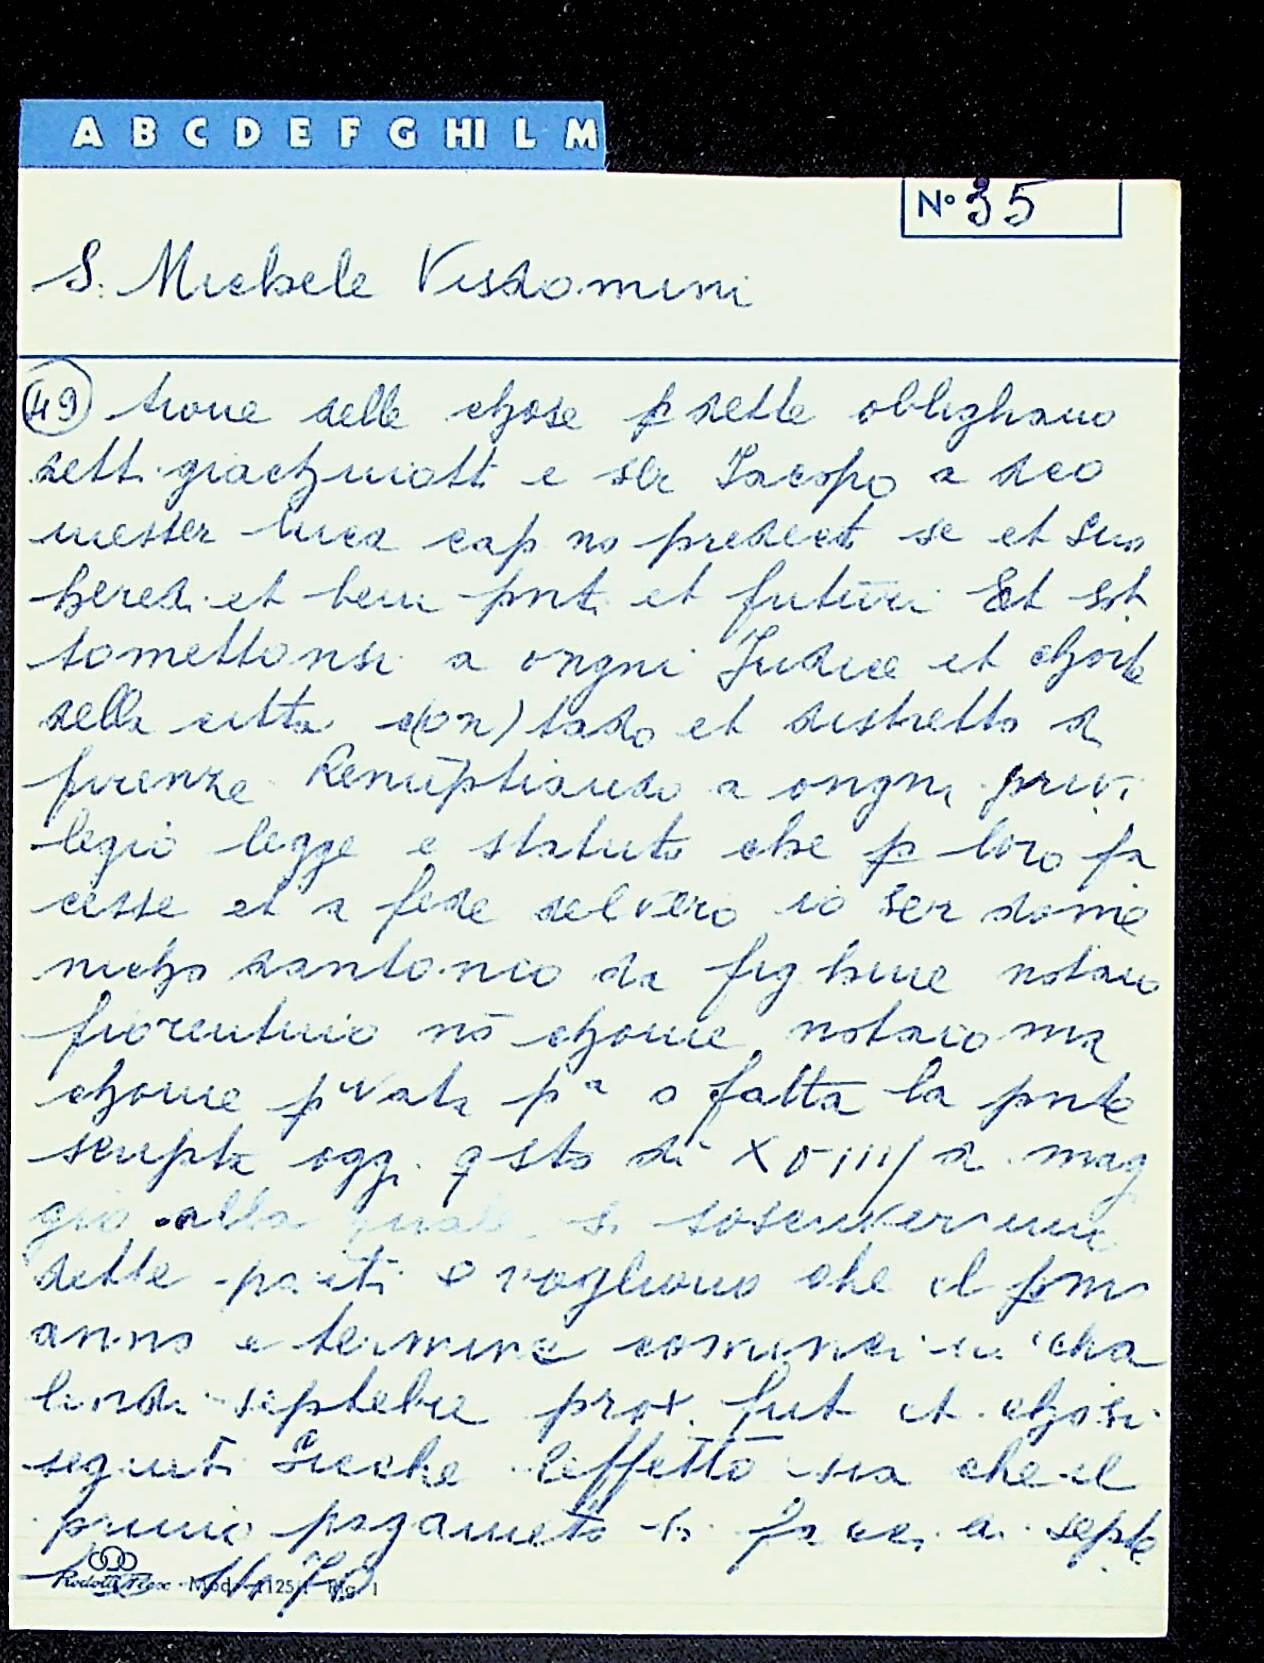 A B C D E F G HI L M
N° 35
S. Michele Visdomini
(49) tione delle chose p dette oblighano
dett. giachinotti e ser Iacopo a dco
messer luca cap no predect se et suo
heredi et beni pnti et futuri Et sot
tomettonsi a ongni Judice et chorte
della citta c(on)tado et distretto di
firenze Renuptiando a ongni privi
legio legge e statuto che p loro fa
cesse et a fede del vero io ser dome
nicho dantonio da fighine notaio
fiorentino nō chome notaio ma
chome pvata pa o fatta la pnte
scripta oggi qsto di XVIIII di mag
gio alla quale si soscriverranno
dette parti e vogliono che il pmo
anno e termine cominci in cha
lendi septebre prox. fut et chosi
seguiti Sicche l'effetto sia che il
primo pagameto si facci di septe
1470